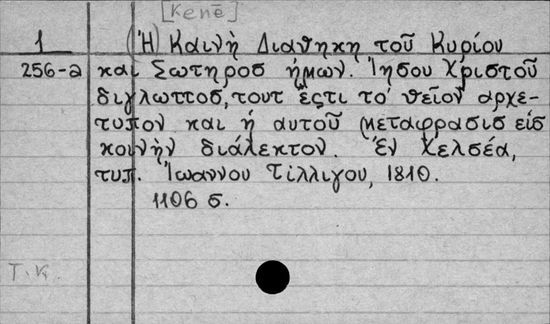 [Kenē]
1 (Ἡ Καινὴ Διαθηκη τοῦ Κυρίου
256-a και Σωτηροσ ἡμων. Ἰησου Χριστοῦ
διγλωττοσ, τουτ ἔςτι το' θεῖον αρχε-
τυπον και ἡ αυτοῦ μεταφρασισ εἰσ
κοινὴν διάλεκτον. Ἐν Χελσέα,
τυπ. Ἰωαννου Τίλλιγου, 1810.
1106 σ.
T.K.